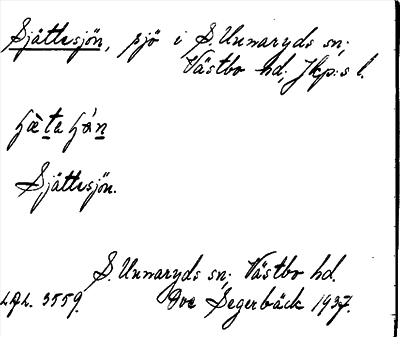 Sjättesjön, sjö i S. Unnaryds sn;
Västbo hd; Jkp:s l.
Sjättesjön.
S. Unnaryds sn; Västbo hd.
L.A.L. 3559. Ove Segerbäck 1937.